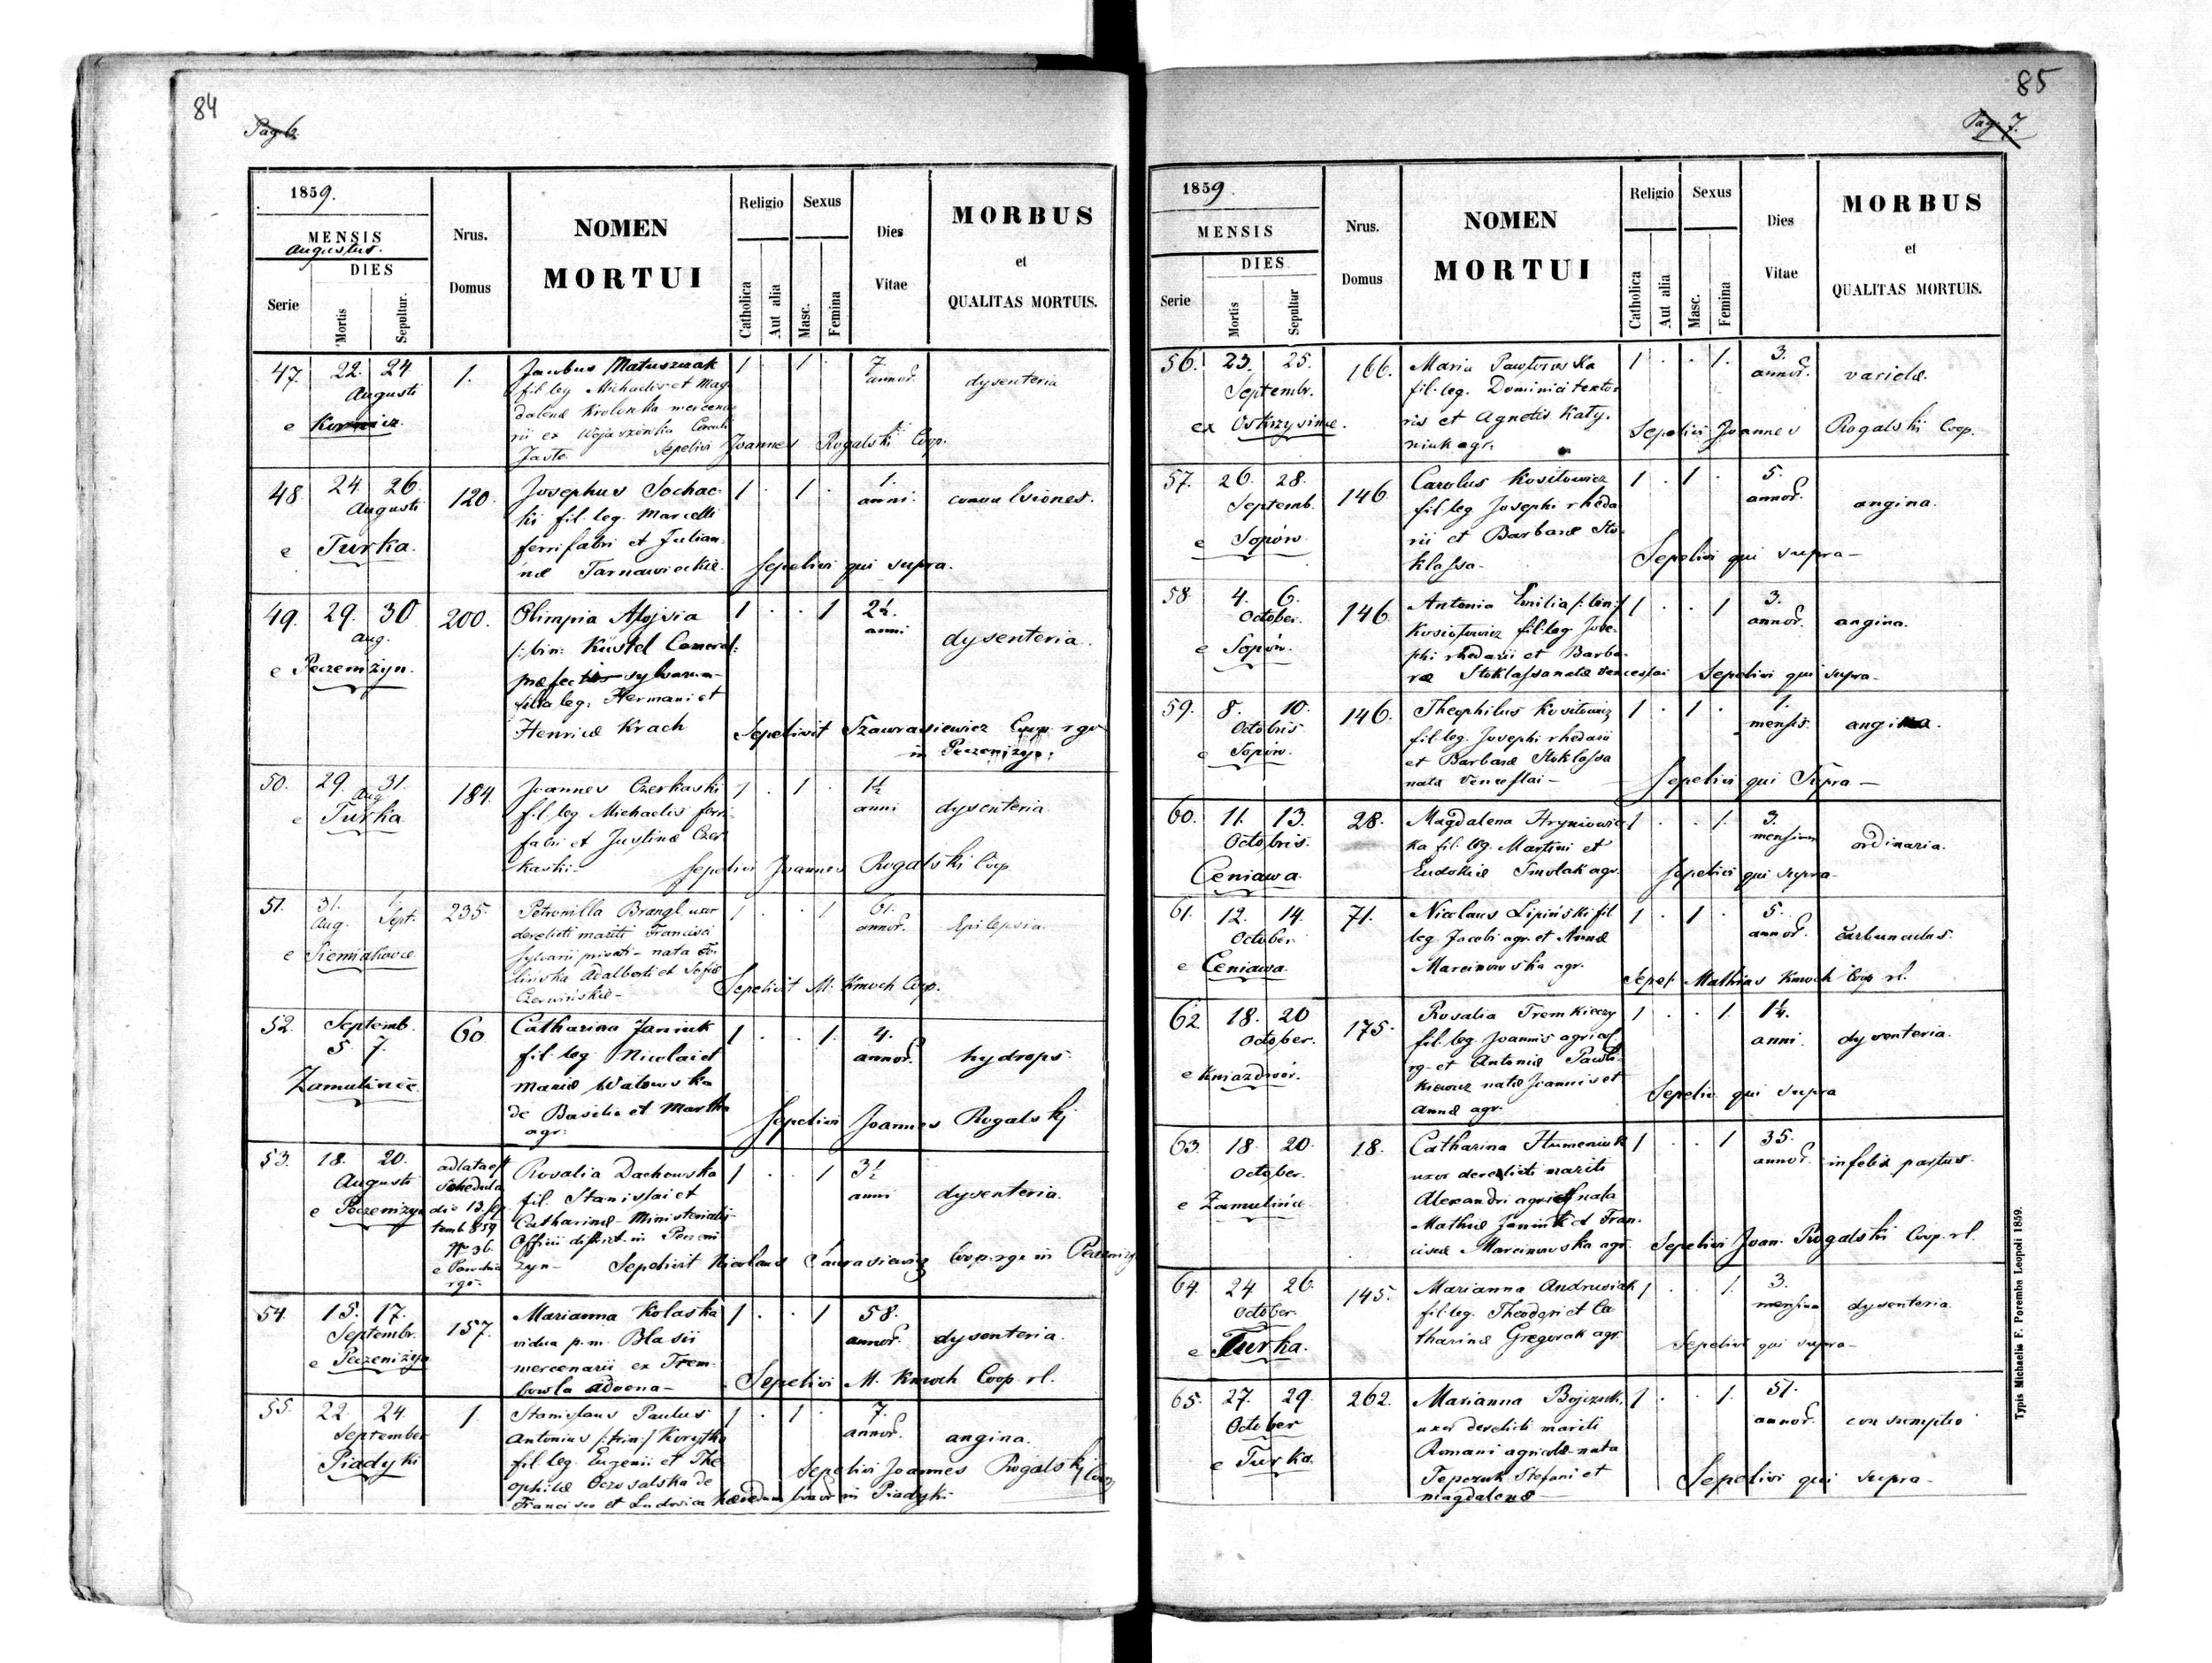 84
Pag. 6.
1859.
MENSIS
Augustus.
DIES
Serie
Mortis
Sepultur.
Nrus.
Domus
NOMEN
MORTUI
Religio
Catholica
Aut alia
Sexus
Masc.
Femina
Dies
Vitae
MORBUS
et
QUALITAS MORTUIS.
47. 22. 24 1. Jacobus Matuszczak 1 . 1 . 7.
Augusti fil. leg Michaelis et Mag annor. dysenteria
dalenæ Krolonka mercena
e
rii ex
Jaste. Sepelivi Joannes Rogalski Coop.
48. 24. 26. 120. Josephus Sochac- 1 . 1 . 1.
Augusti ki fil. leg. Marcelli anni. convulsiones.
ferrifabri et Julian
e Turka. næ Tarnawieckie. Sepelivi qui supra.
49. 29. 30 200. Olimpia Aloisia 1 . . 1 2½.
aug. /: bin: Küstel Cameral: anni dysenteria.
e Peczeniżyn. præfecti sylvarum
filia leg. Hermani et
Henricæ Krach Sepelivit Szawrasiewicz Coop. rgr
in Peczeniżyn.
50. 29. 31. 184. Joannes Czerkaski 1 . 1 . 1½
Aug fil. leg Michaelis ferri- anni dysenteria
e Turka fabri et Justinæ Czer
kaski- Sepelivi Joannes Rogalski Coop.
51. 31. 1. 235. Petronilla Brangl. uxor 1 . . 1 61.
Aug. Sept. derelicti mariti Francisci annor. Epilepsia.
e Siemiakowce sylvarii privati- nata
Adalberti et Sofiæ
Czerwińskie- Sepelivit M. Kmoch Coop.
52. Septemb. 60 Catharina Janiuk 1 . . 1. 4.
5. 7. fil. leg Nicolai et annor. hydrops.
Zamulince. Mariæ Watowska
de Basilio et Martha
agr. Sepelivi Joannes Rogalski
53. 18. 20. adlata est Rosalia Dachowska 1 . . 1 3½
Augusti schedula fil Stanislai et anni dysenteria.
e Peczeniżyn die 13. Sep Catharinæ- Ministerialis
temb 859 Officii district. in Peczeni
No 36. żyn- Sepelivit Nicolaus Saurasiewicz Coop. rgr in Peczeniżyn
e Parochia
rgr.
54. 15. 17. 157. Marianna Kolaska 1 . . 1 58.
Septembr. vidua p. m. Blasii annor. dysenteria.
e Peczeniżyn mercenarii ex Trem-
bowla advena- Sepelivi M. Kmoch Coop. rl.
55. 22. 24. 1. Stanislaus Paulus 1 . 1 . 7.
September Antonius /: trin:/ Korytko annor. angina.
Piadyki fil leg. Eugenii et The
ophilæ Sepelivi Joannes Rogalski Coop
Francisco et Ludovica hæredum bonor in Piadyki
85
Pag. 7.
1859.
MENSIS
DIES
Serie
Mortis
Sepultur
Nrus.
Domus
NOMEN
MORTUI
Religio
Catholica
Aut alia
Sexus
Masc.
Femina
Dies
Vitae
MORBUS
et
QUALITAS MORTUIS.
56. 23. 25. 166. Maria Pawłowska 1 . . 1. 3.
Septembr. fil. leg. Dominici texto- annor. variolæ.
ex Oskrzysince. ris et Agnetis Katy.
niuk agr. Sepelivi Joannes Rogalski Coop.
57. 26. 28. 146. Carolus Kositowicz 1 . 1 . 5.
Septemb. fil. leg Josephi rheda annor. angina.
e Sopów rii et Barbaræ Sto-
klassa- Sepelivi qui supra-
58 4. 6. 146. Antonia Emilia /: bin:/ 1 . . 1 3.
October. Kosiotowicz fil. leg. Jose- annor. angina.
e Sopów. phi rhedarii et Barba-
ræ Stoklassa natæ Venceslai Sepelivi qui supra-
59. 8. 10. 146. Theophilus Kositowicz 1 . 1 . 1.
Octobris fil. leg. Josephi rhedarii mensis. angina.
e Sopów. et Barbaræ Stoklassa
nata Venceslai- Sepelivi qui supra-
60. 11. 13. 28. Magdalena Hryniowiec 1 . . 1. 3.
Octobris. ka fil. leg. Martini et mensium ordinaria.
Ceniawa. Eudokiæ Smolak agr. Sepelivi qui supra-
61. 12. 14. 71. Nicolaus Lipiński fil 1 . 1 . 5.
October leg. Jacobi agr. et Annæ annor. carbunculus.
e Ceniawa. Marcinowska agr. Sepel. Mathias Kmoch Coop rl.
62. 18. 20 175. Rosalia 1 . . 1. 1¼.
October. fil. leg. Joannis agricol anni. dysenteria.
e Kniazdwór. et Antoniæ
natæ Joannis et
Annæ agr. Sepeliv. qui supra
63. 18. 20. 18. Catharina Humeniuk 1 . . 1 35.
October. uxor derelicti mariti annor. infelix partus.
e Zamulince Alexandri agricol nata
Mathiæ Janiuk et Fran-
ciscæ Marcinowska agr. Sepelivi Joan. Rogalski Coop. rl.
64. 24 26. 145. Marianna Andrusiak 1 . . 1. 3.
October. fil. leg. Theodori et Ca mensium dysenteria.
e Turka. tharinæ Gregorak agr. Sepelivi qui supra-
65. 27. 29. 262. Marianna Bojczuk. 1 . . 1. 51.
October uxor derelicti mariti annor. consumptio
e Turka. Romani agricolæ- nata
Tepczuk Stefani et Sepelivi qui supra-
Magdalenæ
Typis Michaelis F. Poremba Leopoli 1859.